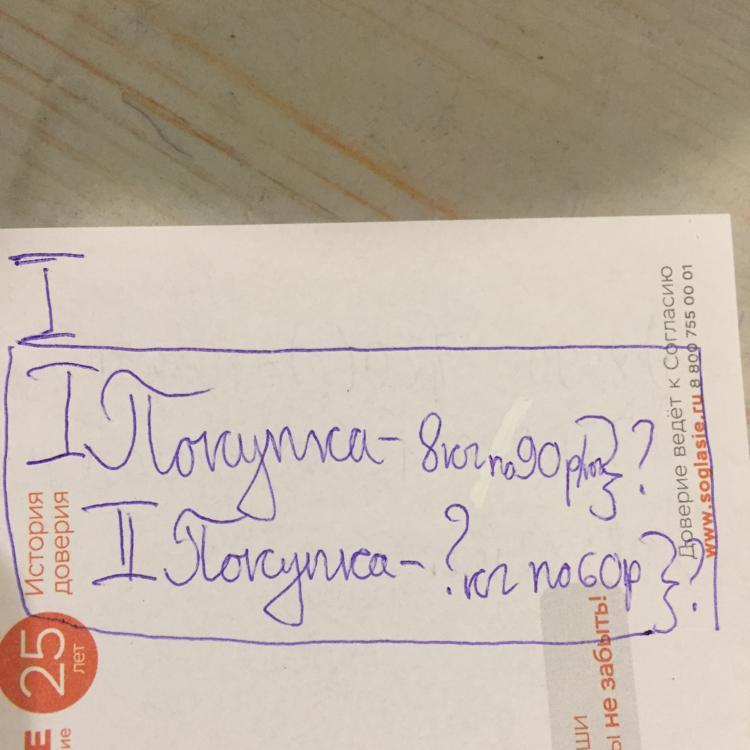 I
I Покупка - 8 кг по 90 р } ?
II Покупка - ? кг по 60 р } ?
История
доверия
25
лет
Доверие ведёт к Согласию
www.soglasie.ru 8 800 755 00 01
ы не забыть!